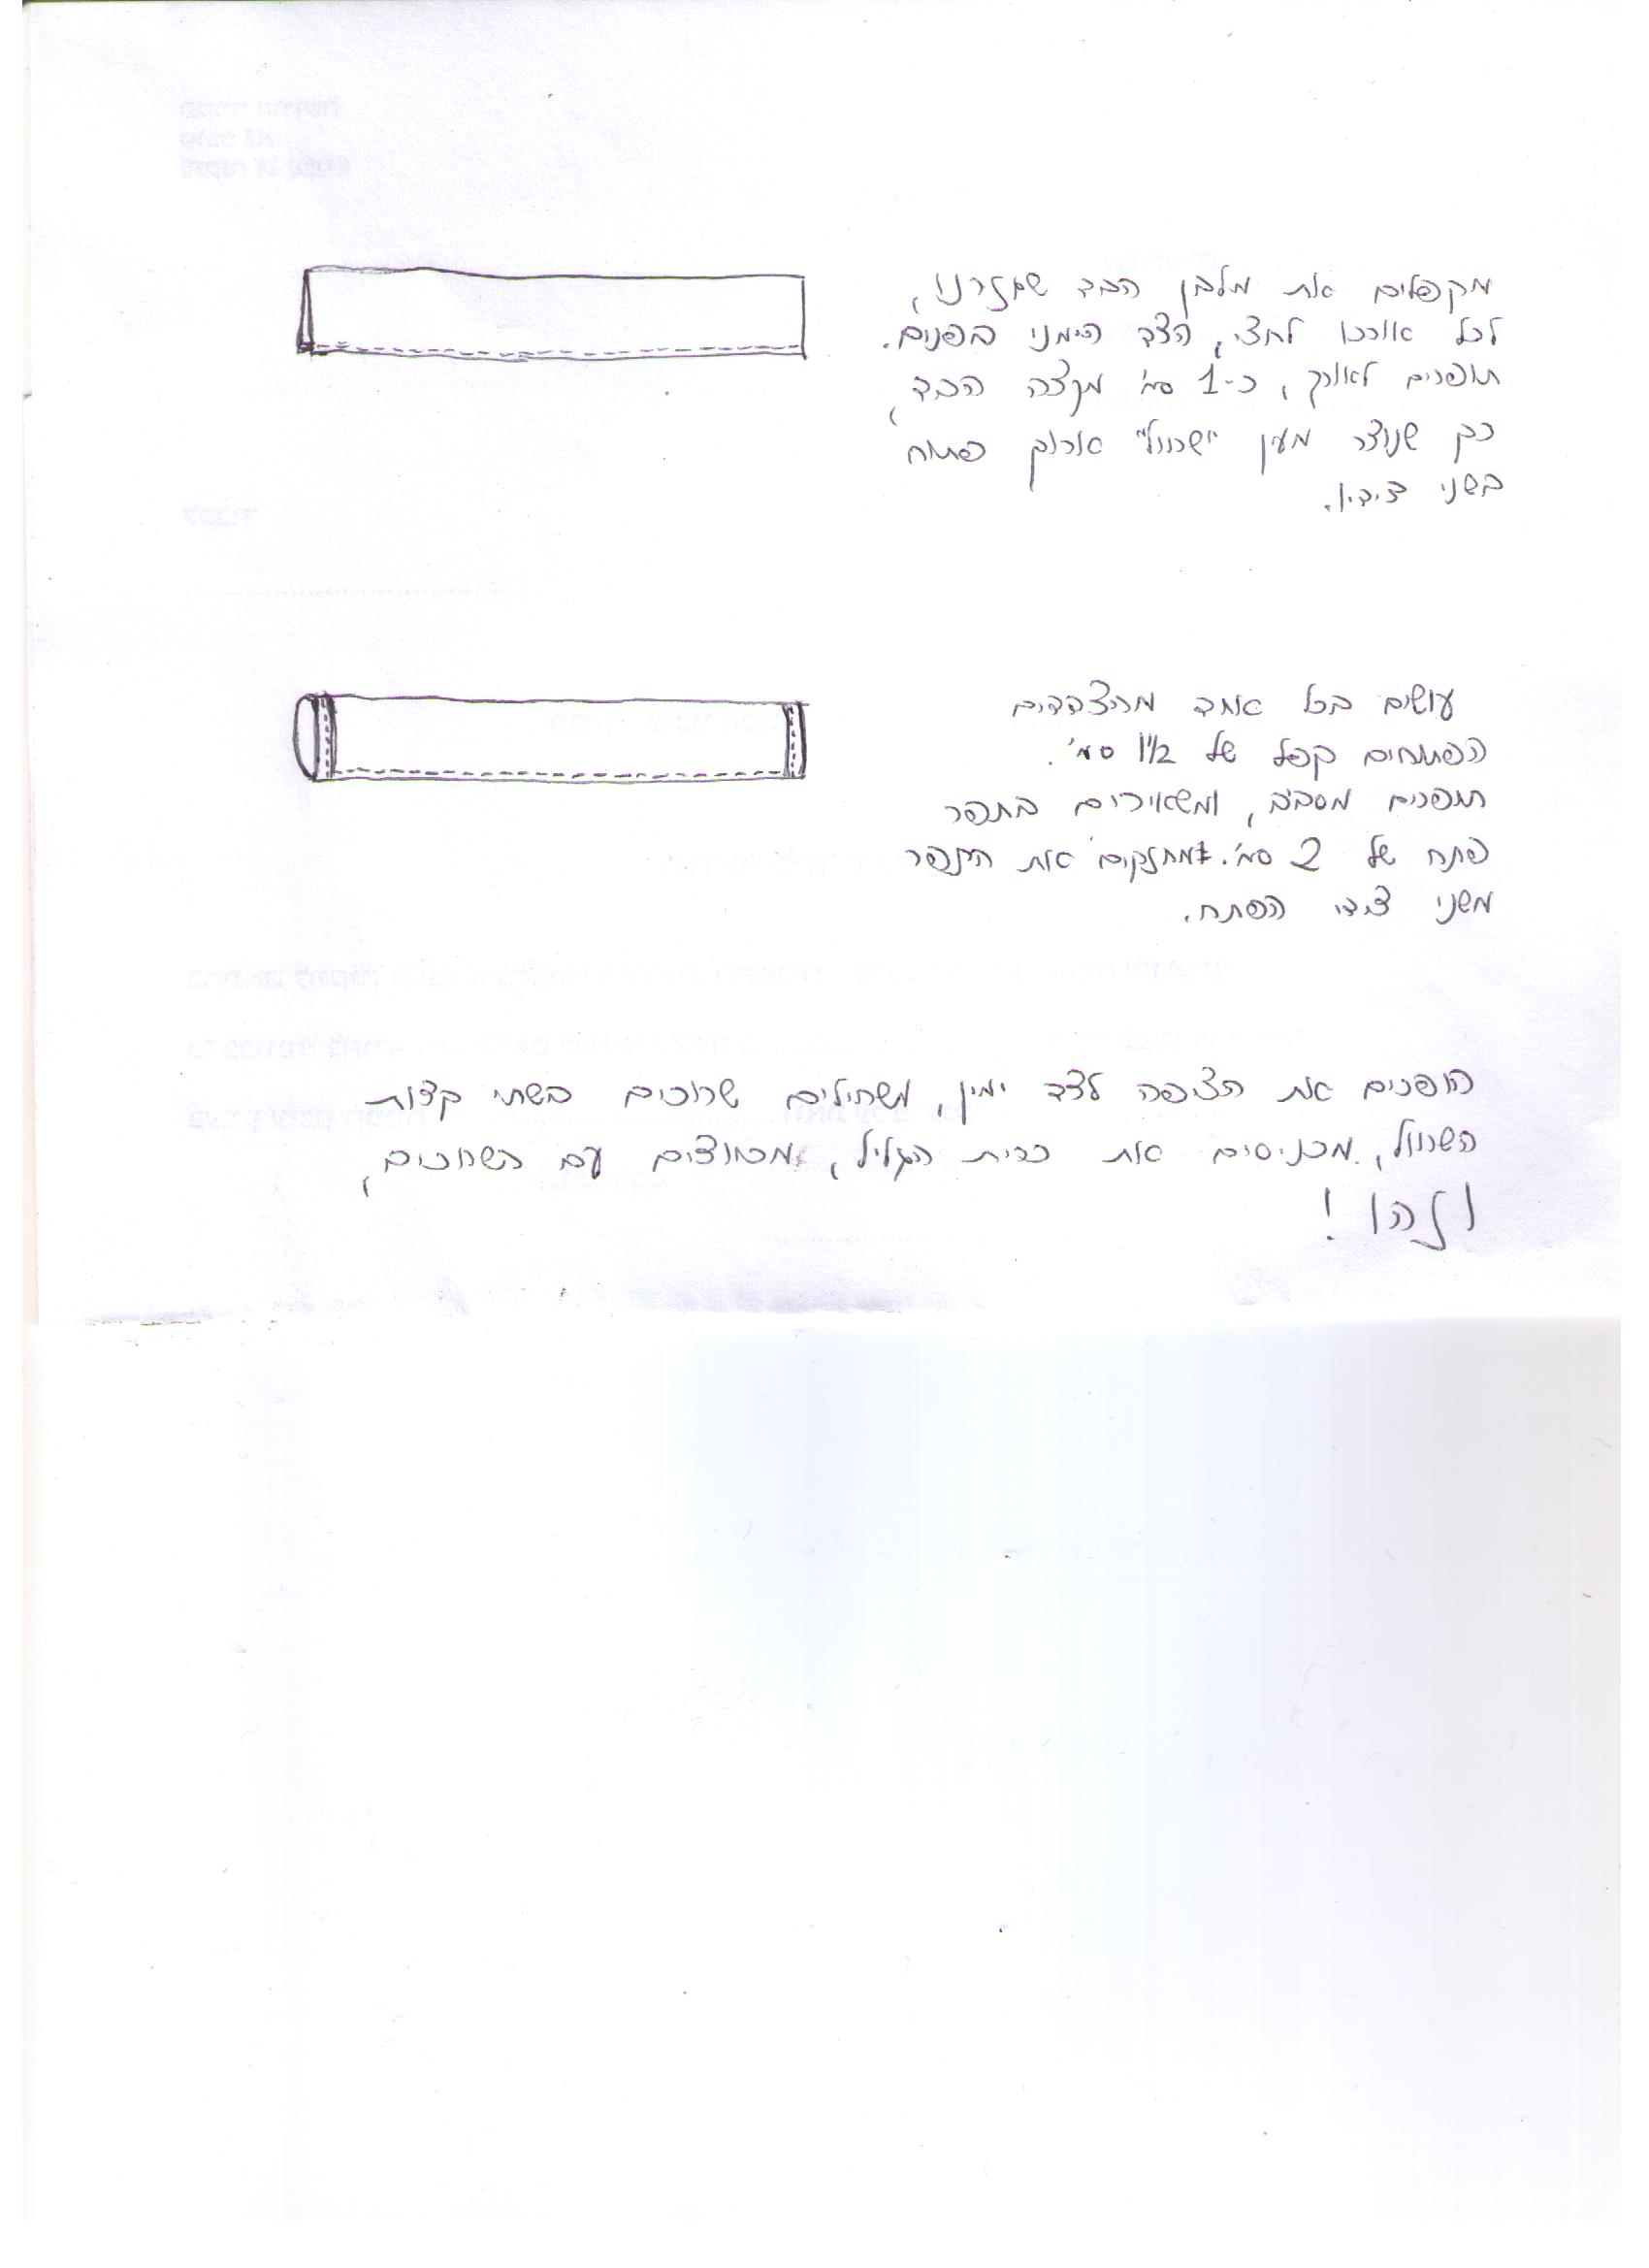 מקפלים את מלבן הבד שגזרנו,
לכל אורכו לחצי, הצד הימני בפנים.
תופרים לאורך, כ-1 סמ' מקצה הבד,
כך שנוצר מעין "שרוול" ארוך פתוח
בשני צידיו.
עושים בכל אחד מהצדדים
הפתוחים קפל של 1/2 סמ'.
תופרים מסביב, ומשאירים בתפר
פתח של 2 סמ'. מחזקים את התפר
משני צידי הפתח.
הופכים את הציפה לצד ימין, משחילים שרוכים בשתי קצות
השרוול, מכניסים את כרית הגליל, מכווצים עם השרוכים,
וזהו!